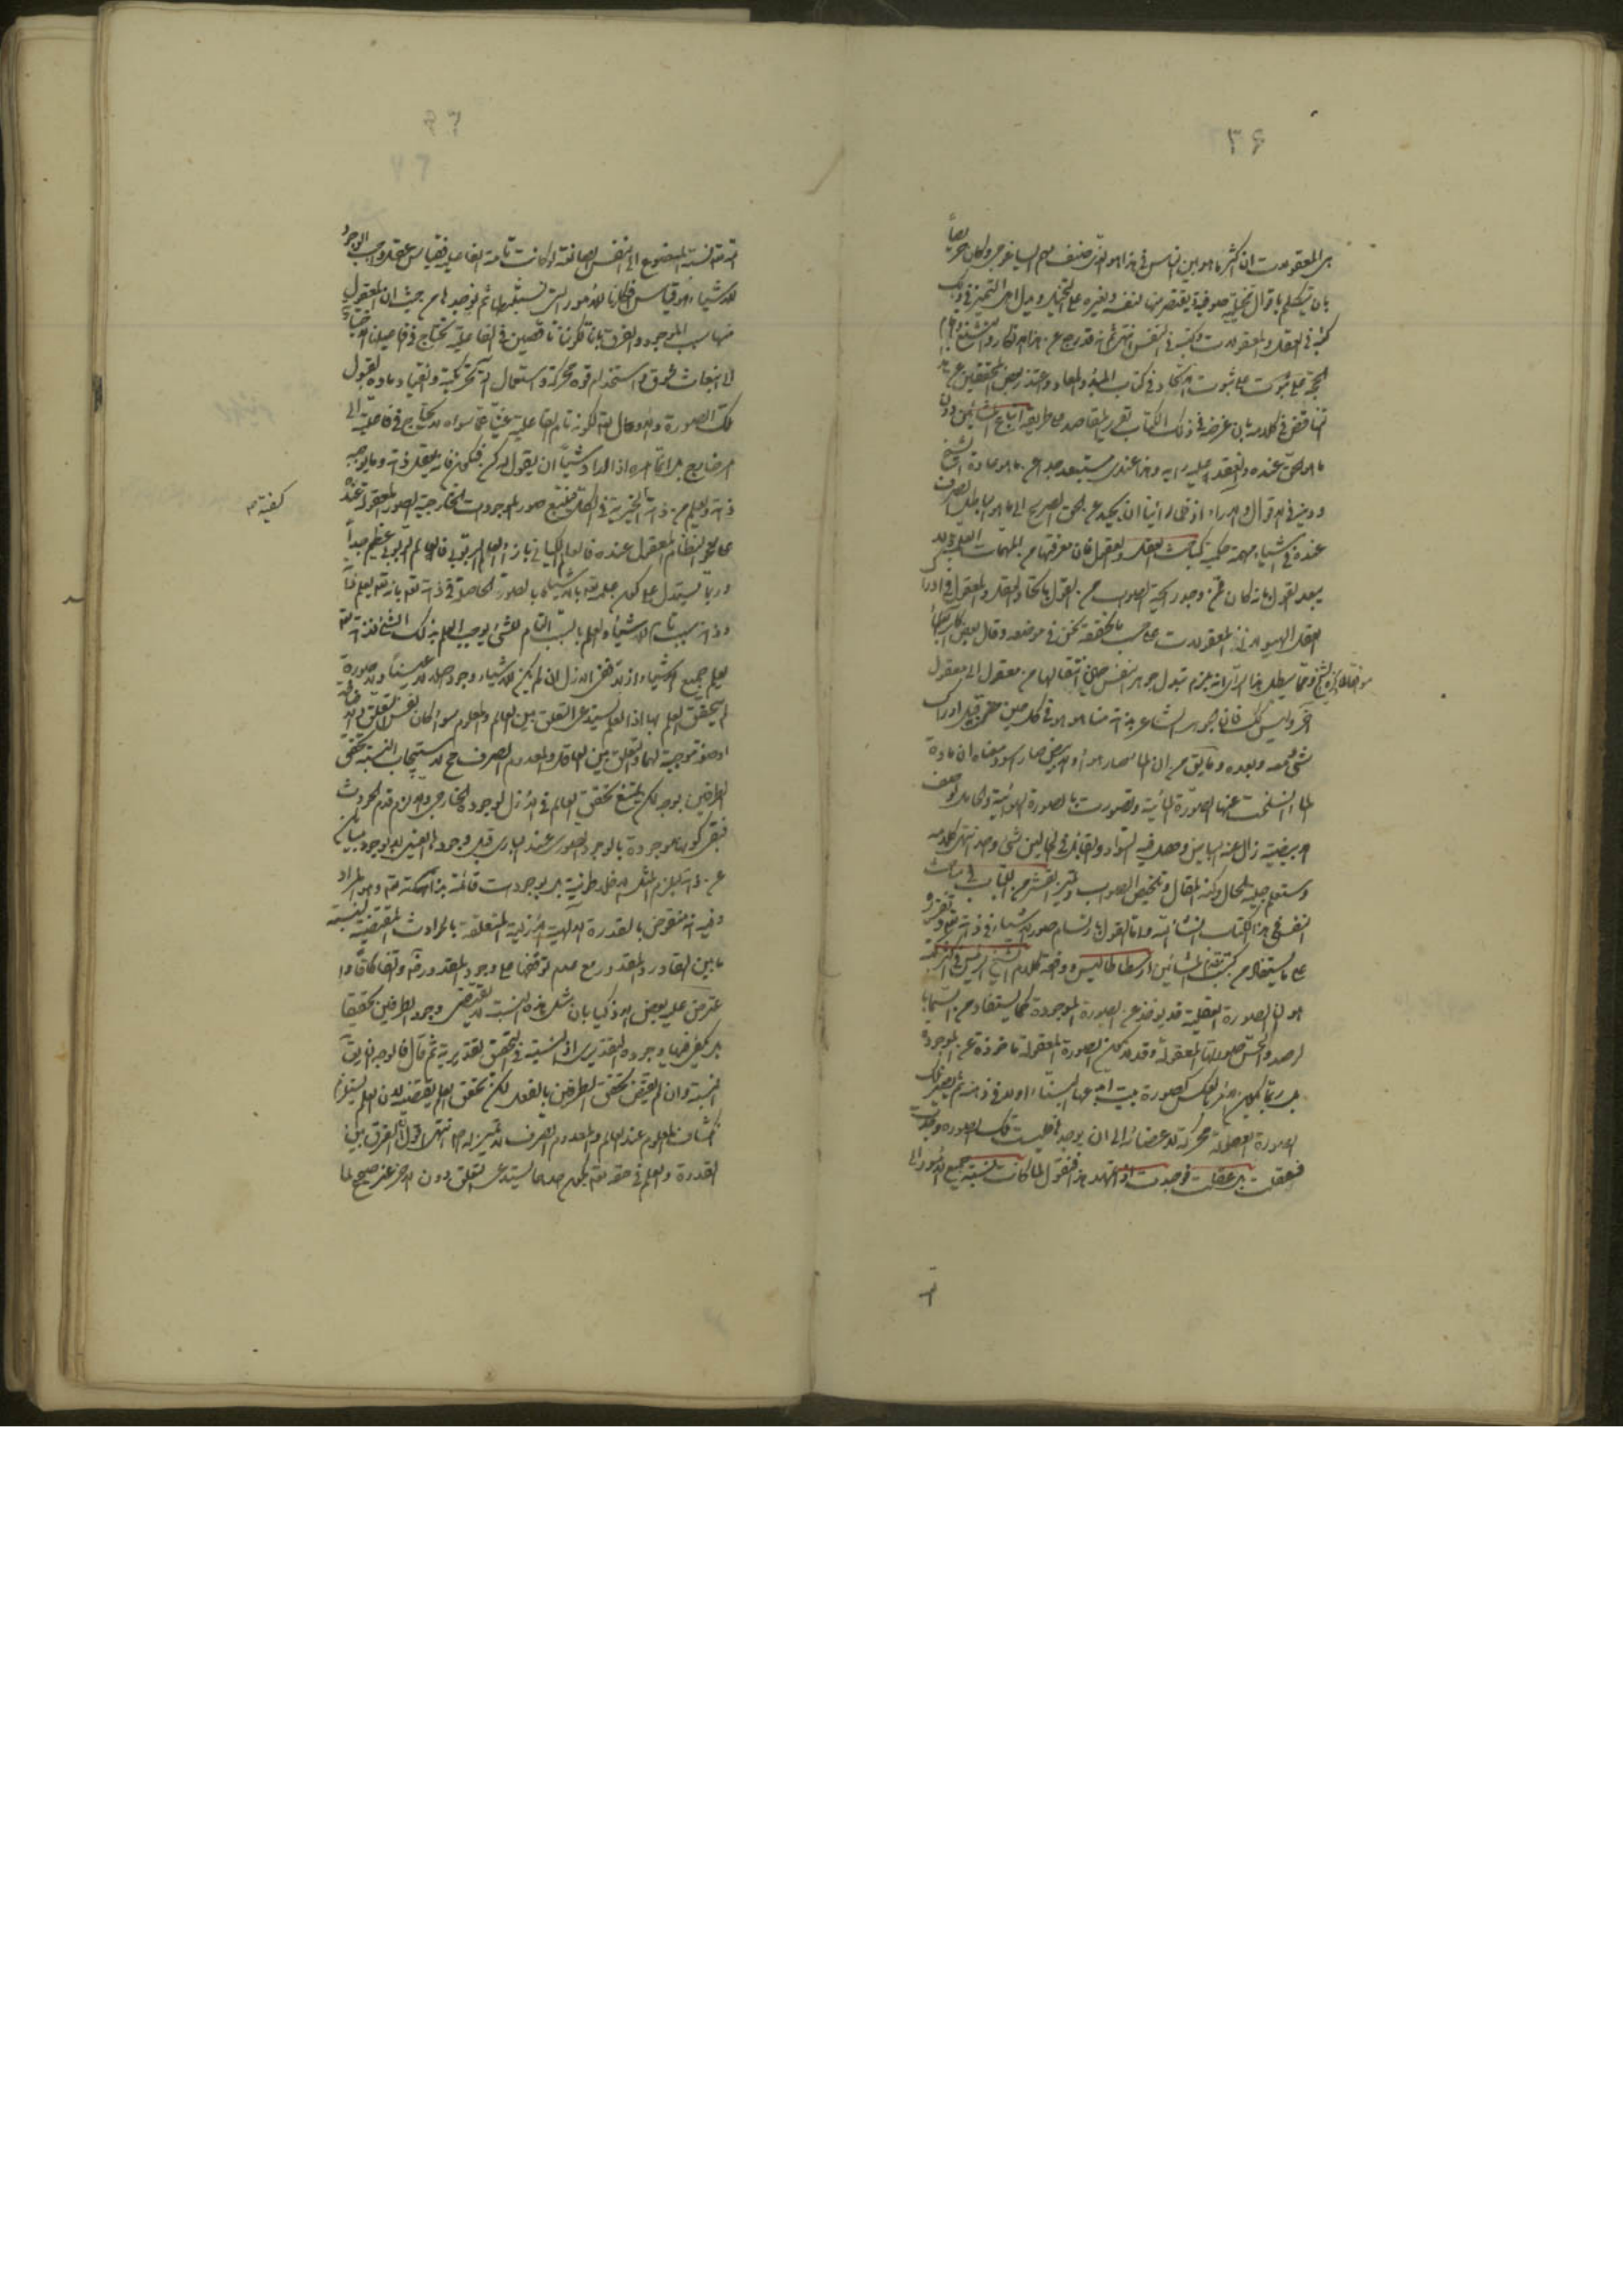 ۳۶
هى المعقولات ان اكثر ما هوس الناس فى هذا هو الذى صنف لهم ايساغوجى وكان حريصاً
بان يتكلم باقوال مخيلة صوفية يقتصر منها لنفسه ولغيره على التخيل ويدل اهل التميز فى ذلك
كتبه فى العقل والمعقولات وكتبه فى النفس انتهى ثم انه قد رجع عن هذا الانكار والتشنيع واقام
الحجة على ثبوت الاتحاد فى كتاب المبدء والمعاد واعتذر بعض المحققين عن هذا
التناقض فى كلامه بان غرضه فى ذلك الكتاب تقرير المقاصد على طريقة اتباع المشائين دون
ما هو الحق عنده وانعقد عليه رايه وهذا عندى مستبعد جداً عن ما هو عادة الشيخ
وديدنه فى الاقوال والاراء اذ قلما راينا ان يحيد عن الحق الصريح الى ما هو الباطل الصرف
عنده فى اشياء مهمة حكمية كمباحث العقل والعقول فان معرفتها من المهمات العلمية ولا
يبعد القول بانه كان ممن وجد رائحة الصواب من القول باتحاد العقل والمعقول فى ادراك
العقل الهيولانى المعقولات على حسب ما نحققه نحن فى موضعه وقال بعض الفضلاء
موافقاً لما ذكره الشيخ ومما يبطل هذا الراى انه يلزم تبدل جوهر النفس حين انتقالها من معقول الى معقول
آخر وليس كك فان الجوهر الشاعر بذاته منا هو هو فى كل حين حتى قبل ادراك
شئ ومعه وبعده وما يق من ان الماء صار هواء والابيض صار اسود معناه ان مادة
الماء انسلخت عنها الصورة المائية وتصورت بالصورة الهوائية والحامل لوصف
الابيضية زال عنه البياض وحصل فيه السواد والقابل فى الحالين شئ واحد انتهى كلامه
وستعلم جلية الحال وكنه المقال وتلخيص الصواب وتميز القشر من اللباب فى مباحث
النفس فى هذا الكتاب انشاء الله واما القول بارتسام صور الاشياء فى ذاته تعالى وتقريره
على ما يستفاد من كتب مقدم المشائين ارسطاطاليس ووافقه كلام الشيخ الرئيس فى اكثر كتبه
هو ان الصورة العقلية قد يؤخذ عن الصورة الموجودة كما يستفاد من السماء بالرصد
لرصد والحس صورتها المعقولة وقد لا يكون الصورة المعقولة ماخوذة عن الموجودة
بل ربما يكون الامر بالعكس كصورة بيت ابدعها البناء اولا فى ذهنه ثم يصير تلك
الصورة العقلية محركة لاعضائه الى ان يوجدها فليست تلك الصورة وجدت
فعقلت بل عقلت فوجدت اذا تمهد هذا فنقول لما كانت نسبة جميع الامور الى
الله
الله تعالى نسبة المصنوع الى النفس الصانعة لو كانت تامة الفاعلية فقياس عقل واجب الوجود
للاشياء هو قياس افكارنا للامور التى نستنبطها ثم نوجدها من حيث ان المعقول
منها سبب الموجود والفرق باننا لكوننا ناقصين فى الفاعلية نحتاج فى فاعليتنا الاختيارية
الى انبعاث شوق واستخدام قوة محركة واستعمال آلة تحريكية وانقياد مادة لقبول
تلك الصورة والاول تعالى لكونه تام الفاعلية غنياً عما سواه لا يحتاج فى فاعليته الى
امر خارج بل انما امره اذا اراد شيئاً ان يقول له كن فيكون فانه يعقل ذاته وما يوجبه
ذاته ويعلم من ذاته كيفية الخيرية فى الكل فيتبع صور الموجودات الخارجية الصور المعقولة عنده
على نحو النظام المعقول عنده فالعالم الكيانى بازاء العالم الربوبى والعالم الربوبى عظيم جداً
وربما يستدل على كون علمه تعالى بالاشياء بالصور الحاصلة فى ذاته تعالى بانه تعالى يعلم ذاته
وذاته سبب تام للاشياء والعلم بالسبب التام للشئ يوجب العلم بذلك الشئ فذاته تعالى
يعلم جميع الاشياء ازلاً ففى الازل ان لم يكن للاشياء وجود اصلا لا عيناً ولا صورة
لم يتحقق العلم بها اذ العلم يستدعى التعلق بين العالم والمعلوم سواء كان نفس التعلق والاضافة
او صفة موجبة لهما والتعلق بين العاقل والمعدوم الصرف محال لاستيجاب النسبة تحقق
الطرفين بوجه لكن يمتنع تحقق العالم فى الازل بالوجود الخارجى والا لزم قدم الحوادث
فبقى كونها موجودة بالوجود الصورى عند البارى قبل وجودها العينى لا بوجود مباين
عن ذاته ليلزم المثل الافلاطونية بل بوجودات قائمة بذاته تعالى وهو المراد
وفيه انه منقوض بالقدرة الالهية الازلية المتعلقة بالحوادث المقتضية لنسبة
ما بين القادر والمقدور مع عدم توقفها على وجود المقدور معه وتفاكاً وا
عترض عليه بعض الاذكياء بان مثل هذه النسبة لا يقتضى وجود الطرفين تحقيقاً
بل يكفى فيها وجوده التقديرى اذ النسبة فى التحقق تقديرية ثم قال فالوجه ان يق
النسبة وان لم يقتض تحقق الطرفين بالفعل لكن تحقق العلم يقتضيه لان العلم يستلزم
انكشاف المعلوم عند العالم والمعدوم الصرف لا تميز له اصلا انتهى اقول ان الفرق بين
القدرة والعلم فى حقه تعالى بكون احدهما يستدعى التعلق دون الاخر غير صحيح لما
كيفية